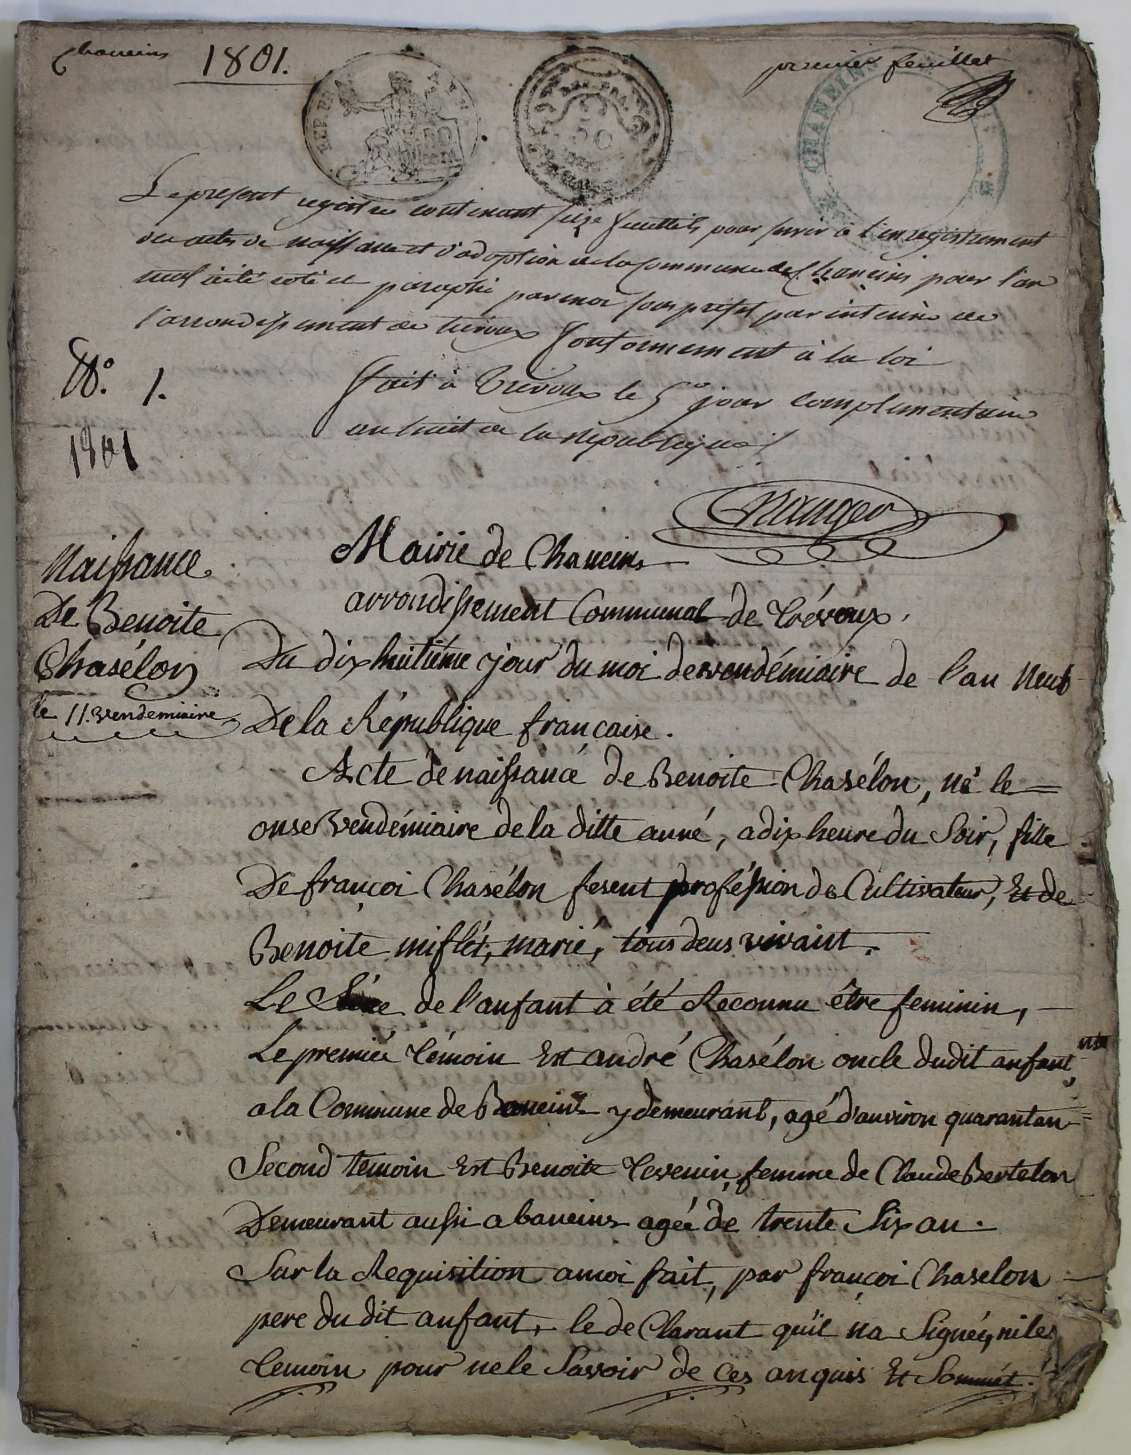 Chaneins 1801.
premier feuillet
CHANEINS
Le present registre contenant seize feuillets pour servir à l'enregistrement
des actes de naissance et d'adoption de la Commune de Chaneins pour l'an
neuf a été coté et paraphé par moi sous prefet par interim de
l'arrondissement de trévoux conformement à la loi
fait à Trévoux le 5e jour complimentaire
an huit de la république
N.° 1.
1801
Mairie de Chaneins
arrondissement Communal de trévoux.
Naissance
De Benoite
Chasélon
le 11 vendemiaire
Du dix huitiéme jour du moi de vendémiaire de l'an Neuf
De la République francaise.
Acte de naissance de Benoite Chasélon, né le
onse Vendémiaire de la ditte anné, a dix heure du Soir, fille
De françoi Chasélon fesent proféssion de Cultivateur, Et de
Benoite miflét, marié, tous deus vivaint.
Le Séxe de l'anfant à été Reconnu être feminin,
Le premiér témoin Est andré Chasélon oncle dudit anfant,
a la Commune de Baneins y demeurant, agé d'anviron quarantan
Second temoin Est Benoite tevenin femme de Claude Bertelon
Demeurant aussi a baneins agée de trente Six an.
Sur la Requisition a moi fait, par françoi Chaselon
pere du dit anfant, le de Clarant qu'il na Signé, ni les
temoin pour ne le Savoir de Ces anquis Et Sommét.